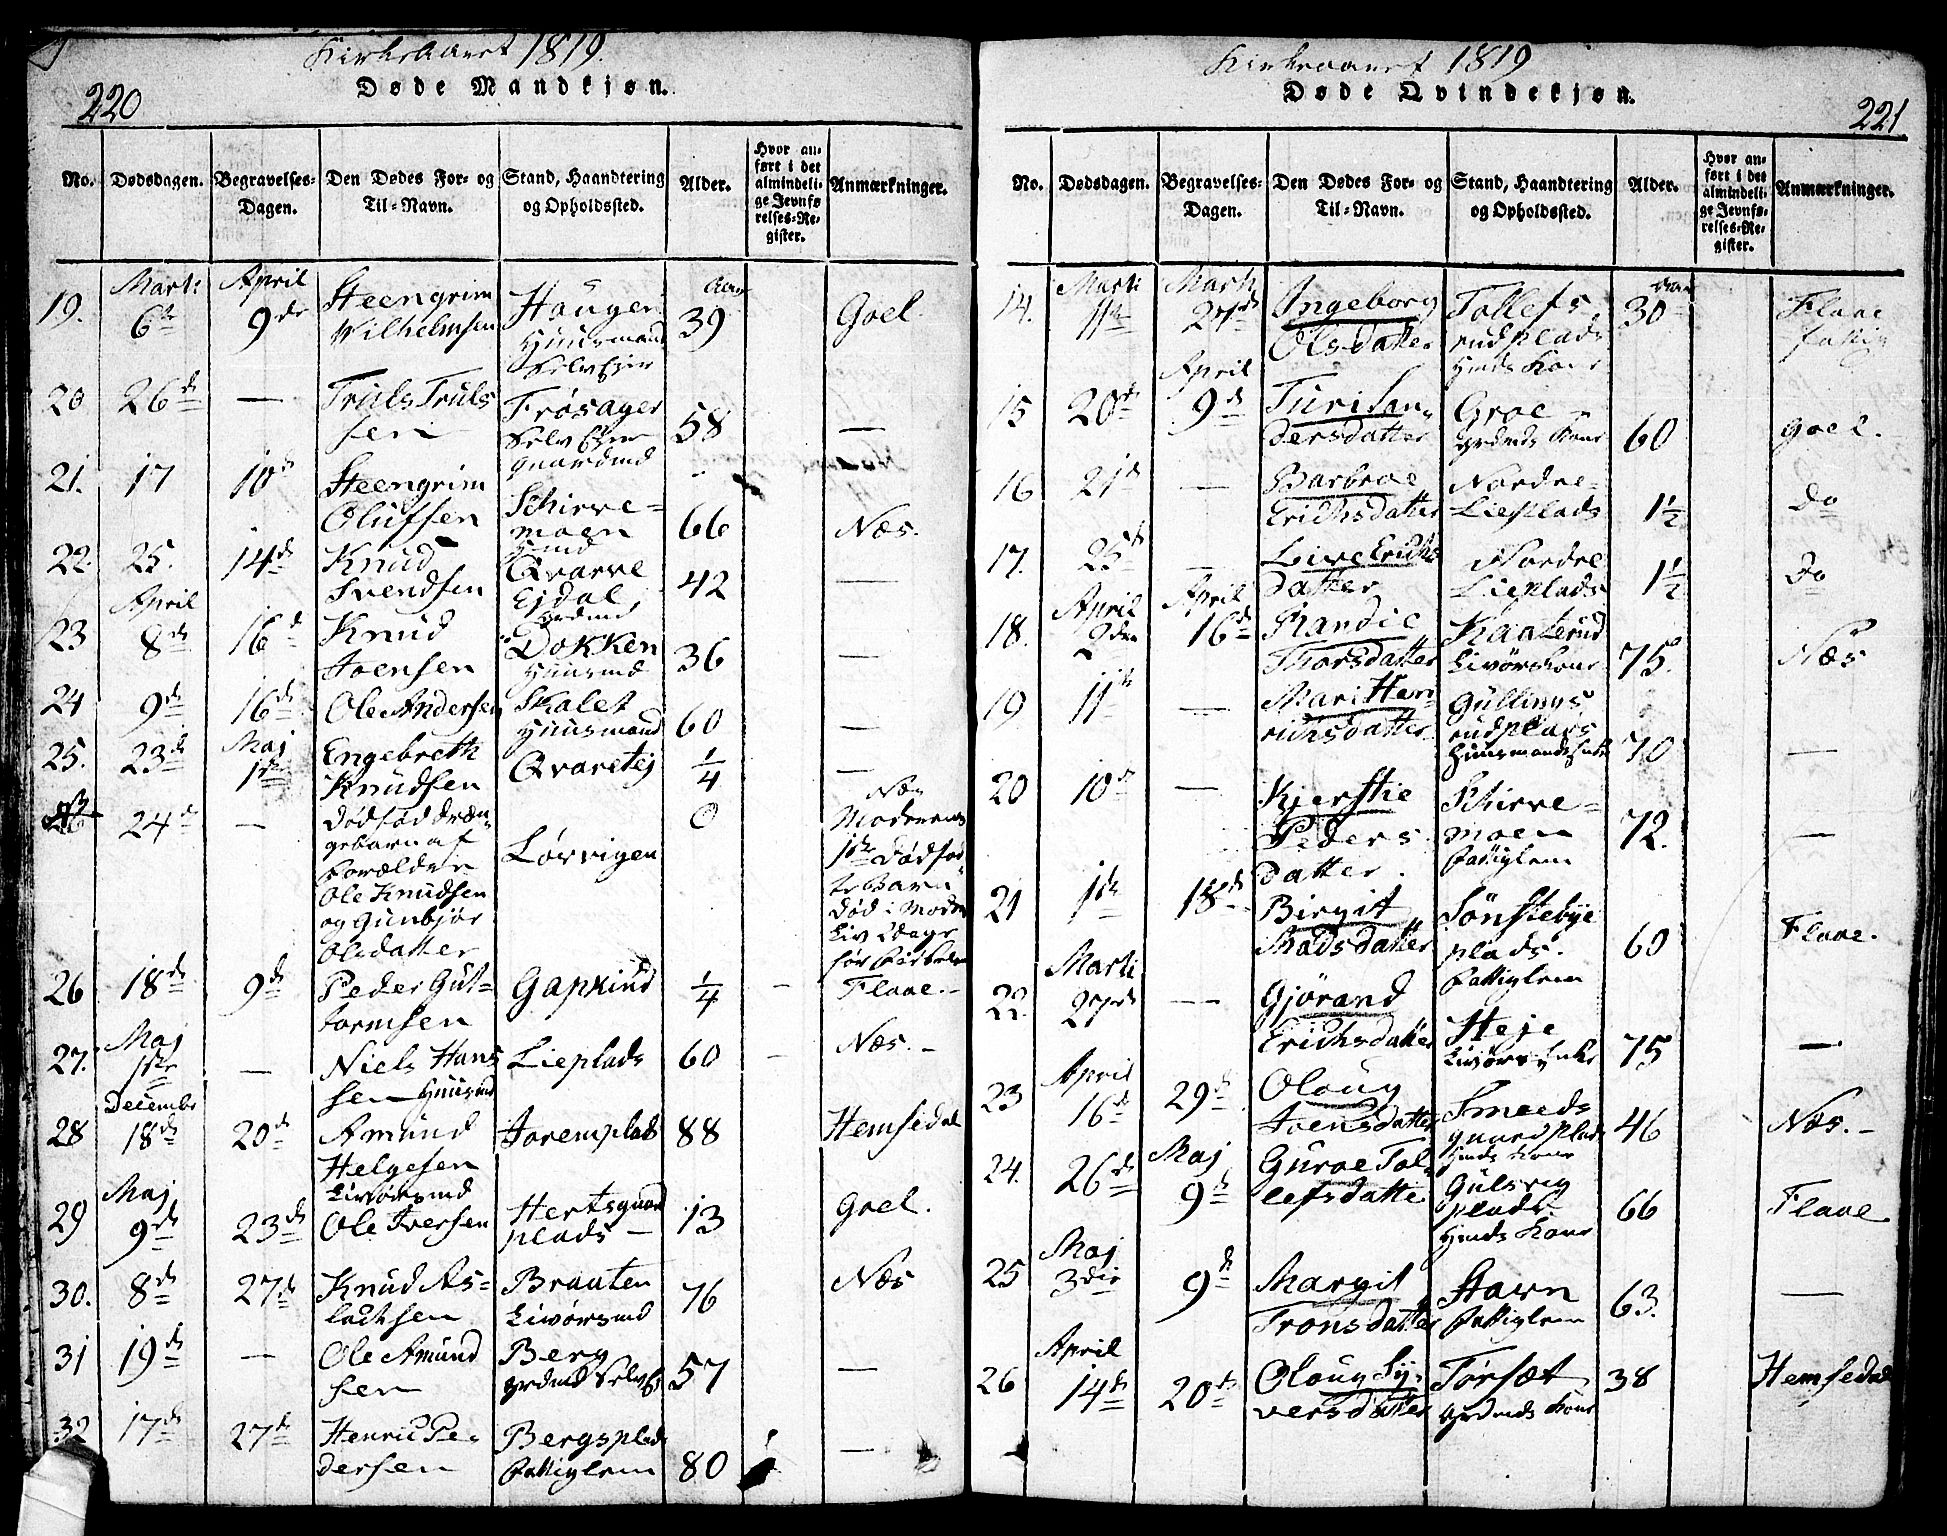 Kirkeaaret 1819.
220
Døde Mandkjøn.
No. Dødsdagen. Begravelses-Dagen. Den Dødes For- og Til-Navn. Stand, Haandtering og Opholdssted. Alder. Hvor anført i det almindelige Jevnførelses-Register. Anmærkninger.
19. Marti 6te April 9de Steengrim Wilhelmsen Haugen Huusmand Selv Ejer Aar 39 Goel.
20 26de — Truls Trulssen Frøsager Selv Ejer Gaardmd 58 —
21. 17 10de Steengrim Olufsen Schirvemoen Hmd 66 Næs.
22. 25. 14de Knud Svendsen Qvarve Ejdal grdmd 42 —
23 April 8de 16de Knud Joensen Dokken Huusmd 36 —
24 9de 16de Ole Andersen Skalet Huusmand 60 —
25. 23de Maj 1ste Engebreth Knudsen Qvaretej 1/4 —
24de — Dødfød Drængebarn af Forældre Ole Knudsen og Gunbjør Olsdatter Lørvigen 0 Næs Moderens 1ste Dødfødte Barn død i Moders Liv
26 18de 9de Peder Guttormsen Gaptrud 1/4 - Flaae.-
27. Maj 1ste — Niels Hanssen Huusmd Lieplads 60 - Næs.-
28 December 18de 20de Amund Helgesen Livørsmd Toremplads 88 Hemsedal
29 Maj 9de 23de Ole Iversen Hertsgaardplads — 13 Goel.
30. 8de 27de Knud Aslachsen Braaten Livørsmd 76 Næs
31 19de — Ole Amundsen Berg grdmd Selv E 57 —
32 17de 27de Henric Pedersen Bergsplads Fattiglem 80 —
Kirkeaaret 1819
Døde Qvindekjøn.
221
No. Dødsdagen. Begravelses-Dagen. Den Dødes For- og Til-Navn. Stand, Haandtering og Opholdssted. Alder. Hvor anført i det almindelige Jevnførelses-Register. Anmærkninger.
14. Marti 11te Marti 27de Ingeborg Olsdatter Tollefsrudplads Hmds Kone Aar 30 Flaae fattig
15 20de April 9de Turi Sandersdatter Groe grdmds Kone 60 Goel.
16 21de — Barbroe Erichsdatter Nordre-Lieplads 1 1/2 Do
17. 25de — Live Erichsdatter Nordre Lieplads 1 1/2 Do
18. April 2den April 16de Randie Thorsdatter Kaaterud Livørskone 75. Næs
19 11te — Mari Henrichsdatter Gullingsrudplads Huusmandsenke 70 —
20 10de — Kjerstie Pedersdatter. Schirvemoen Fattiglem 72. —
21 1ste 18de Birgit Madsdatter Sønstebyeplads. Fattiglem 60 Flaae.
22. Marti 27de — Gjørand Erichsdatter Heje Livørs Enke 75 —
23 April 16de 29de Oloug Joensdatter Smeedsgaardplads Hmds Kone 46 Næs.-
24. 26de Maj 9de Guroe Tollefsdatte Gulsvigplads- Hmds Kone 66 Flaae
25 Maj 3die 9de Margit Tronsdatter Stavn Fattiglem 63. —
26 April 14de 20de Oloug Syversdatter Torsæt grdmds Kone 38 Hemsedal